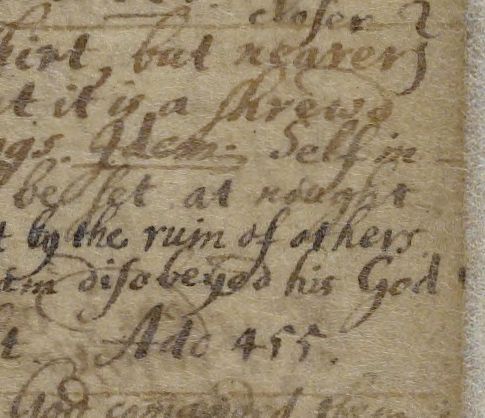 closer
but nearer
t it is a shrewd
ngs. Idem. Self in
be set at nought
t by the ruin of others
am disobeyed his God
t. Ado 455.
God comanded